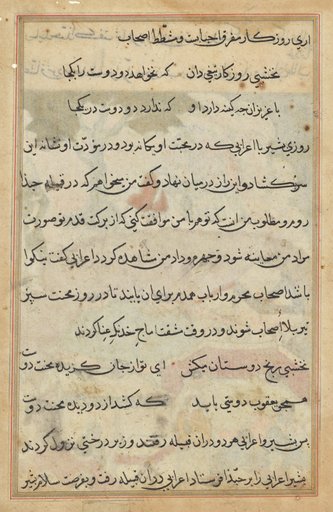 اری روزگار مفرق احباست و مشطط اصحاب
نخشبی روزگار تفرق دان که نخواهد دو دوست را یکجا
با عزیزان چه کینه دارد او که ندارد دو دوست در یکجا
روزی بشیر با اعرابی که در محبت او یکانه بود و در مودت او نشانه این
سر کشاد و این راز در میان نهاد و گفت من میخواهم که در قبیله جندا
روم و مطلوب من انست که تو هم با من موافقت کنی که از برکت قدم تو صورت
مراد من معاینه شود و چهره وداد من مشاهده کردد اعرابی گفت نیکو
باشد اصحاب محرم و ارباب همدم برای ان بایند تا در روز محنت سپر
تیر بلا اصحاب شوند و در وقت مشقت اماج خدنک عنا کردند
نخشبی رنج دوستان میکش ای تو از جان کزیده محنت دوست
همچو یعقوب دوستی باید که کشد از دو دیده محنت دوست
پس بشیر و اعرابی هر دو در ان قبیله رفتند و زیر درختی نزول کردند
بشیر اعرابی را بر جندا فرستاد اعرابی در ان قبیله رفت و بفرصت سلام بشیر